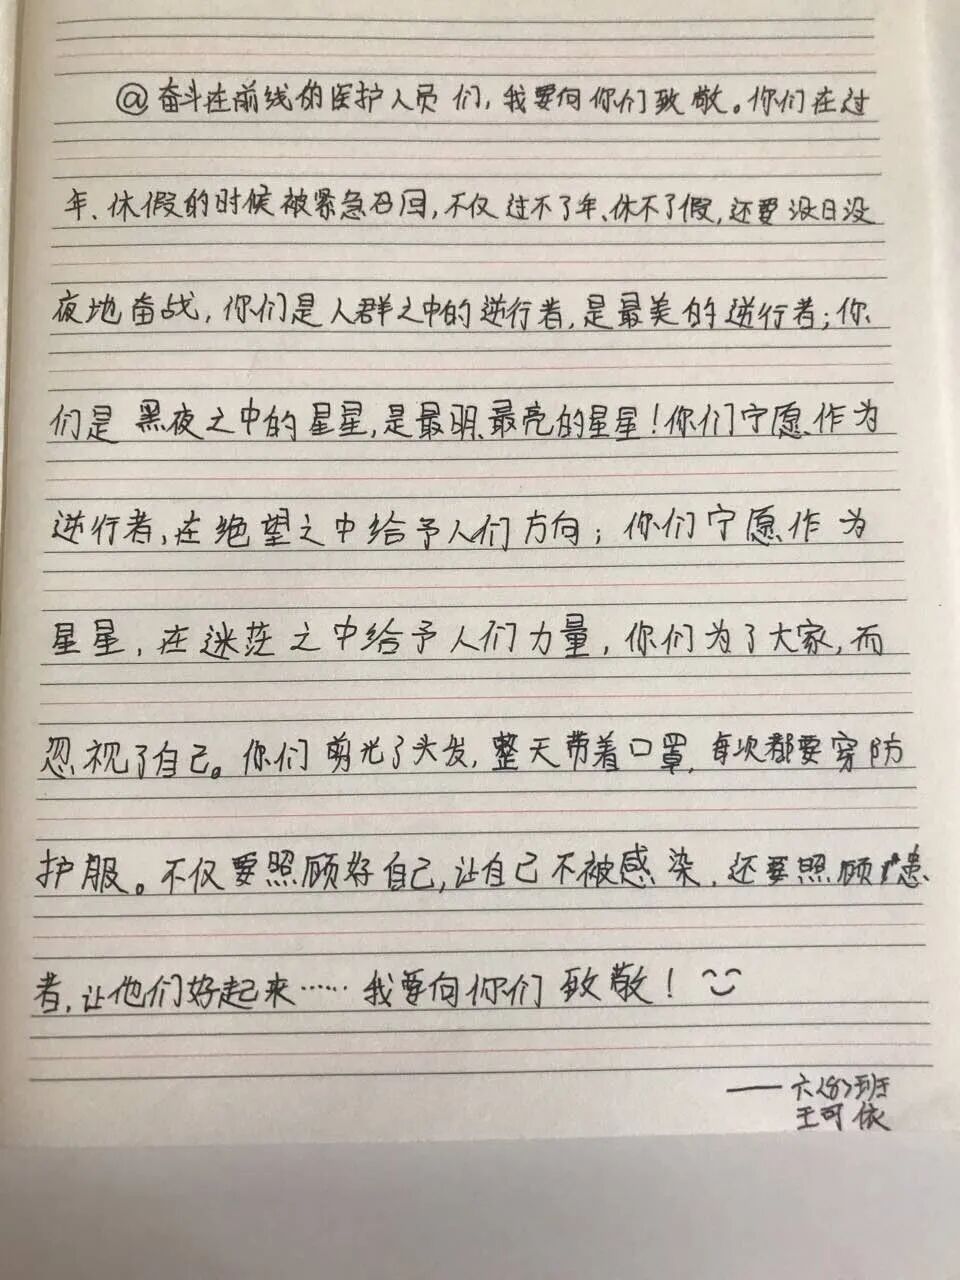 @奋斗在前线的医护人员们,我要向你们致敬。你们在过
年、休假的时候被紧急召回,不仅过不了年、休不了假,还要没日没
夜地奋战,你们是人群之中的逆行者,是最美的逆行者;你
们是黑夜之中的星星,是最明、最亮的星星!你们宁愿作为
逆行者,在绝望之中给予人们方向;你们宁愿作为
星星,在迷茫之中给予人们力量,你们为了大家,而
忽视了自己。你们剪光了头发,整天带着口罩,每次都要穿防
护服。不仅要照顾好自己,让自己不被感染,还要照顾患
者,让他们好起来……我要向你们致敬!
——六<8>班
王可依